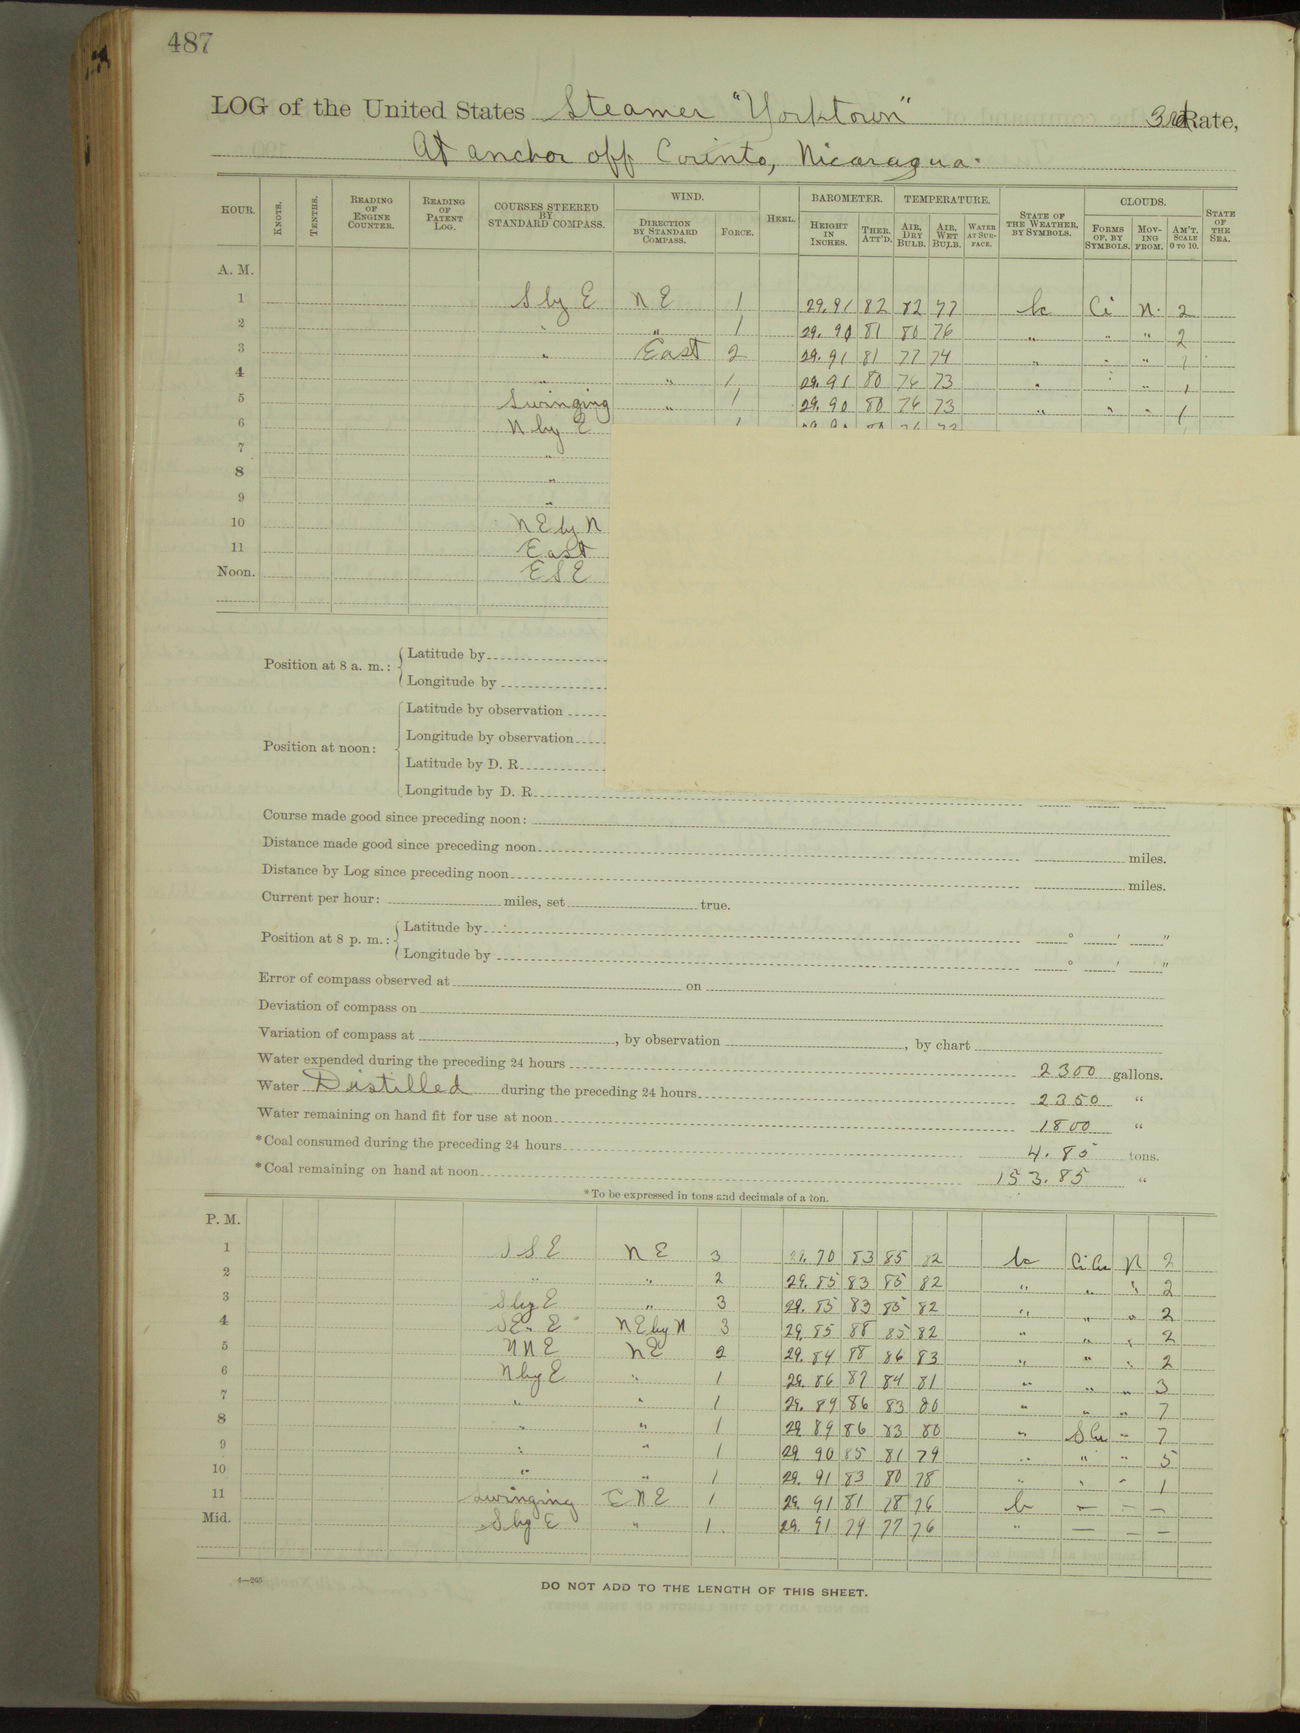 487
LOG of the United States Steamer "Yorktown" 3rd Rate,
At anchor off Corinto, Nicaragua.
HOUR. KNOTS. TENTHS. READING OF ENGINE COUNTER. READING OF PATENT LOG. COURSES STEERED BY STANDARD COMPASS. WIND. DIRECTION BY STANDARD COMPASS. FORCE. HEEL. BAROMETER. HEIGHT IN INCHES. THER. ATT'D. TEMPERATURE. AIR, DRY BULB. AIR, WET BULB. WATER AT SURFACE. STATE OF THE WEATHER, BY SYMBOLS. CLOUDS. FORMS OF, BY SYMBOLS. MOVING FROM. AM'T. SCALE 0 TO 10. STATE OF THE SEA.
A. M.
1 S by E N E 1 29.91 82 82 77 bc Ci N. 2
2 " " 1 29.90 81 80 76 " " " 2
3 " East 2 29.91 81 77 74 " " " 1
4 " " 1 29.91 80 76 73 " " " 1
5 Swinging " 1 29.90 80 76 73 " " " 1
6 N by E
7 "
8 "
9 "
10 N E by N
11 East
Noon. E S E
Position at 8 a. m.: Latitude by
Longitude by
Position at noon: Latitude by observation
Longitude by observation
Latitude by D. R.
Longitude by D. R.
Course made good since preceding noon:
Distance made good since preceding noon miles.
Distance by Log since preceding noon miles.
Current per hour: miles, set true.
Position at 8 p. m.: Latitude by ° ' "
Longitude by ° ' "
Error of compass observed at on
Deviation of compass on
Variation of compass at , by observation , by chart
Water expended during the preceding 24 hours 2300 gallons.
Water Distilled during the preceding 24 hours 2350 "
Water remaining on hand fit for use at noon 1800 "
*Coal consumed during the preceding 24 hours 4.85 tons.
*Coal remaining on hand at noon 153.85 "
*To be expressed in tons and decimals of a ton.
P. M.
1 S S E N E 3 29.70 83 85 82 bc Ci Cu N 2
2 " " 2 29.85 83 85 82 " " " 2
3 S by E " 3 29.85 83 85 82 " " " 2
4 N E by N 3 29.85 88 85 82 " " " 2
5 N N E N E 2 29.84 88 86 83 " " " 2
6 N by E " 1 29.86 87 84 81 " " " 3
7 " " 1 29.89 86 83 80 " " " 7
8 " " 1 29.89 86 83 80 " S Cu " 7
9 " " 1 29.90 85 81 79 " " " 5
10 " " 1 29.91 83 80 78 " " " 1
11 Swinging E N E 1 29.91 81 78 76 b — — —
Mid. S by E " 1. 29.91 79 77 76 " — — —
4—265
DO NOT ADD TO THE LENGTH OF THIS SHEET.